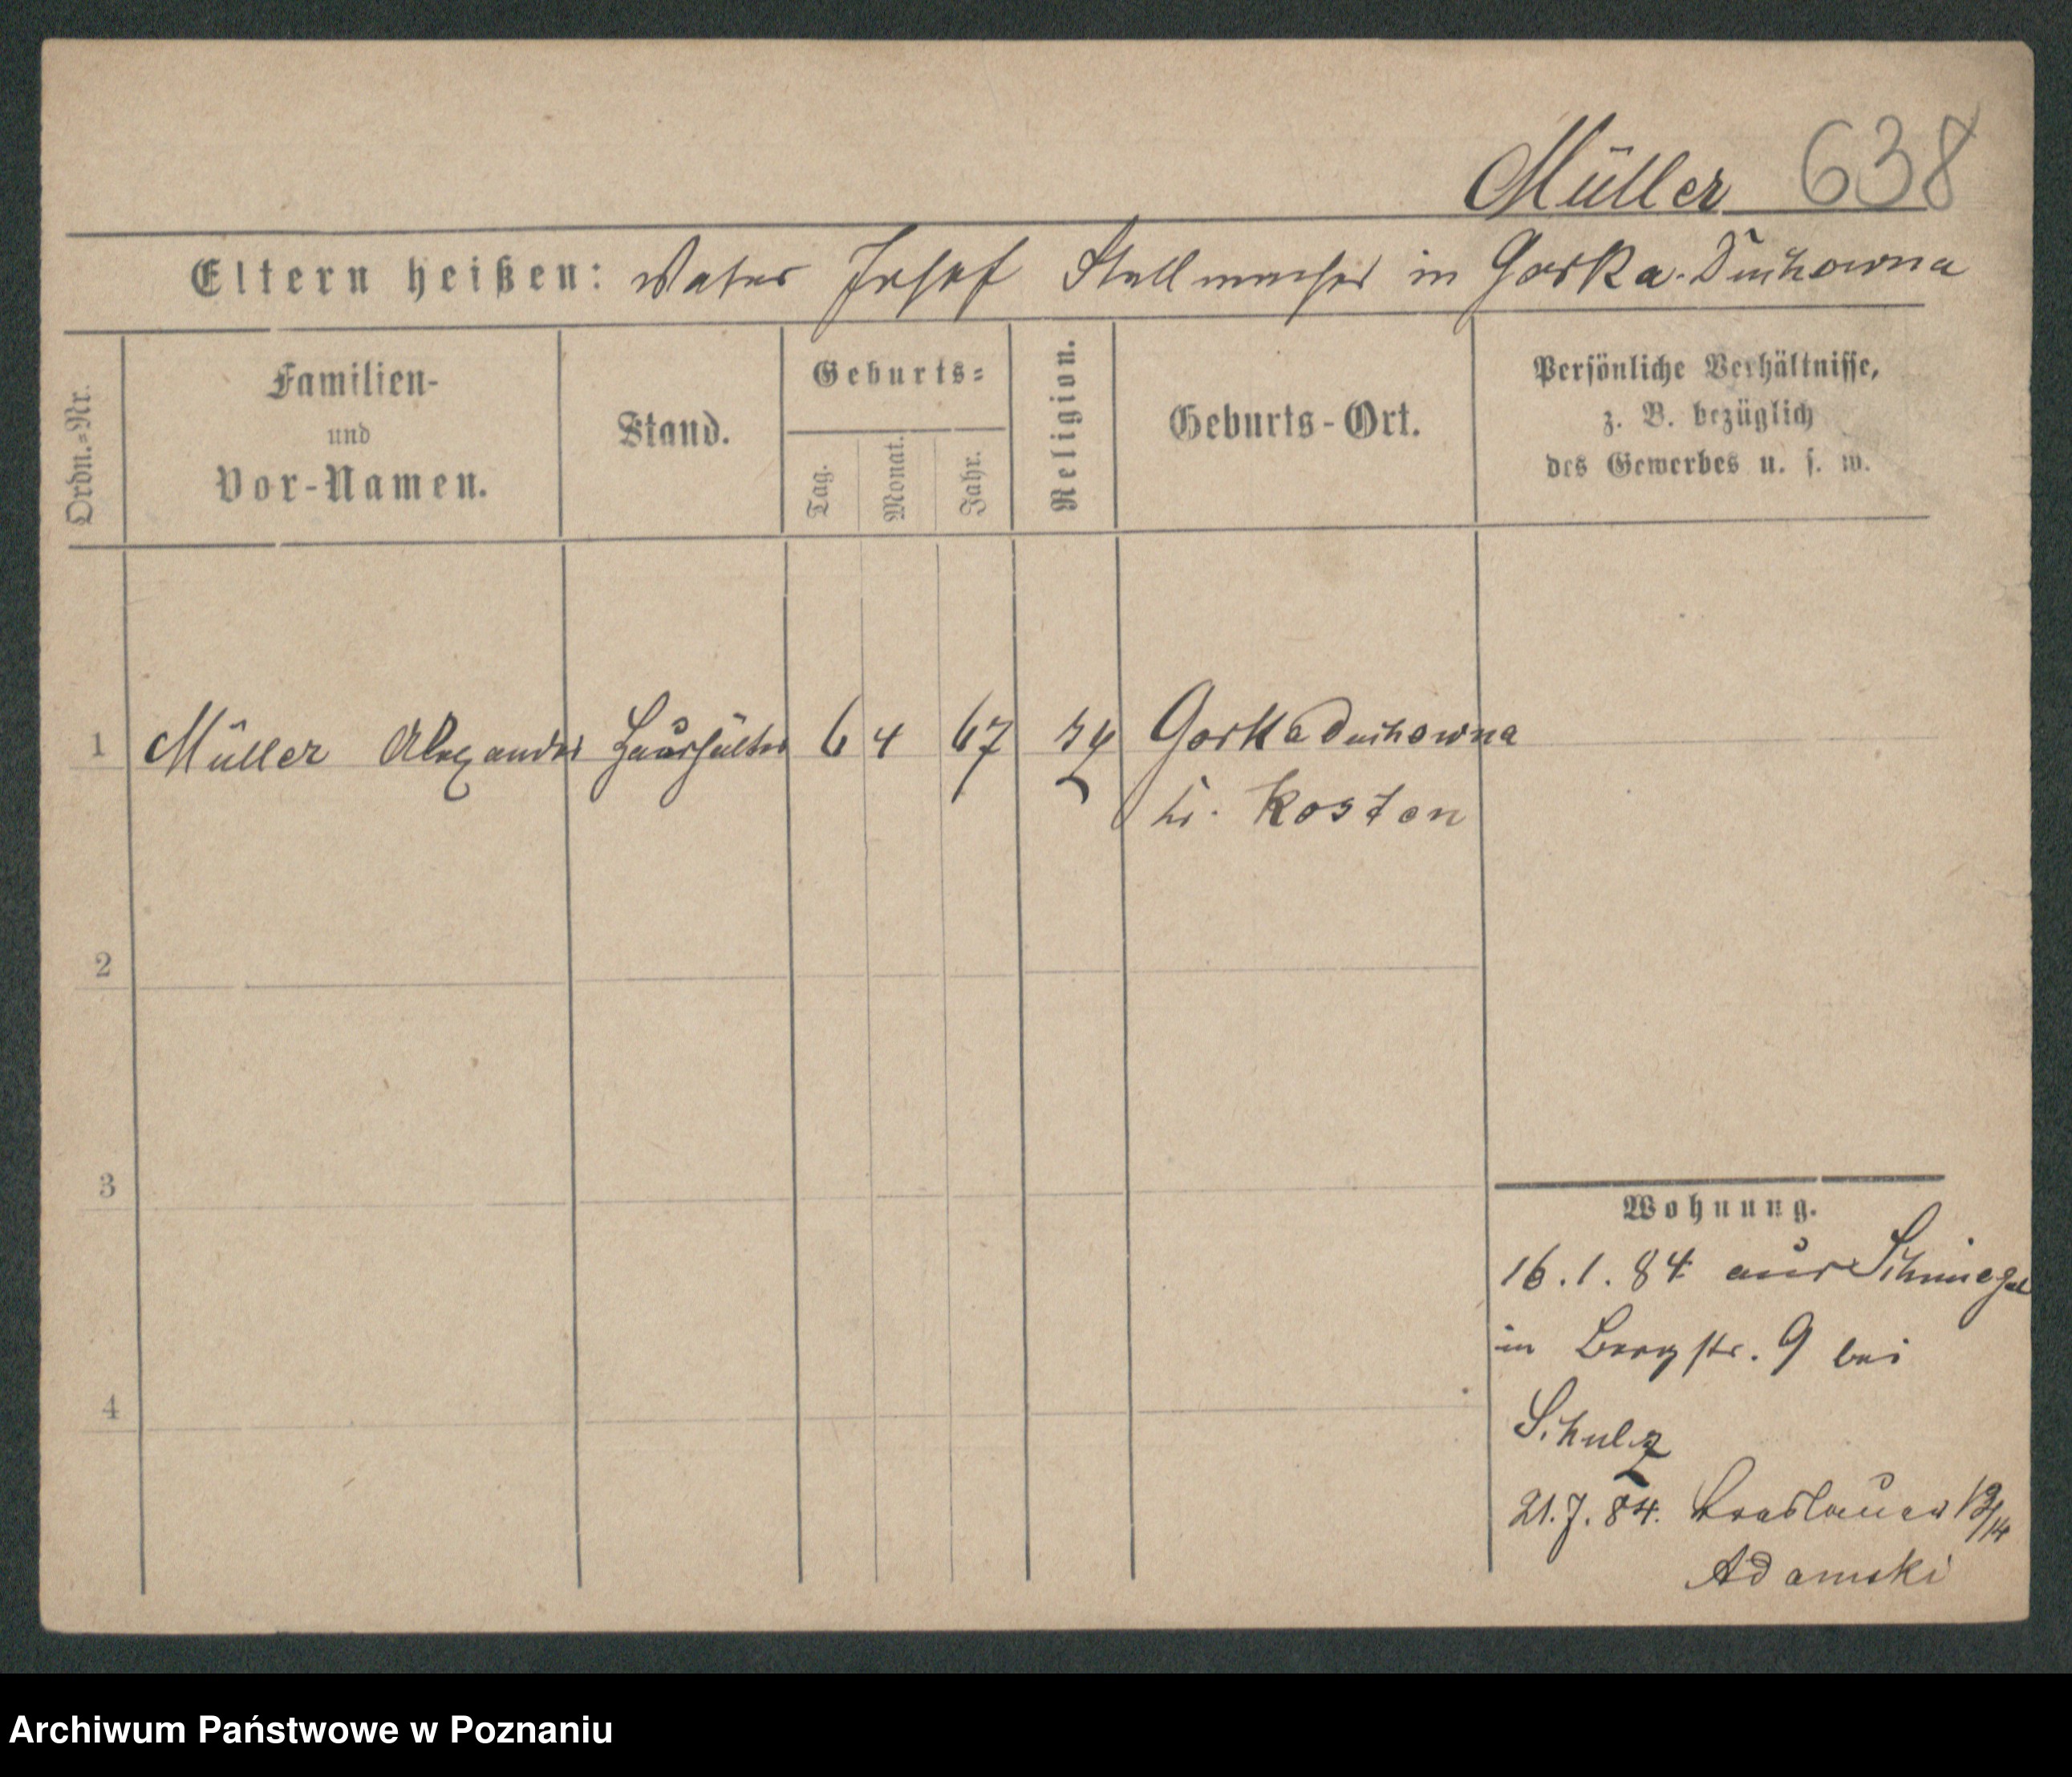 Müller 638
Eltern heißen: Vater Josef Stellmacher in Gorka-Duchowna
Ordn.=Nr.
Familien-
und
Vor-Namen.
Stand.
Geburts=
Tag.
Monat.
Jahr.
Religion.
Geburts-Ort.
Persönliche Verhältnisse,
z. B. bezüglich
des Gewerbes u. s. w.
1 Müller Alexander Haushälter 6 4 67 Gorka Duchowna
Kr. Kosten
2
3
4
Wohnung.
16.1.84 aus Schmiegel
in Bergstr. 9 bei
Schulz
21.7.84. Breslauer 13/14
Adamski
Archiwum Państwowe w Poznaniu